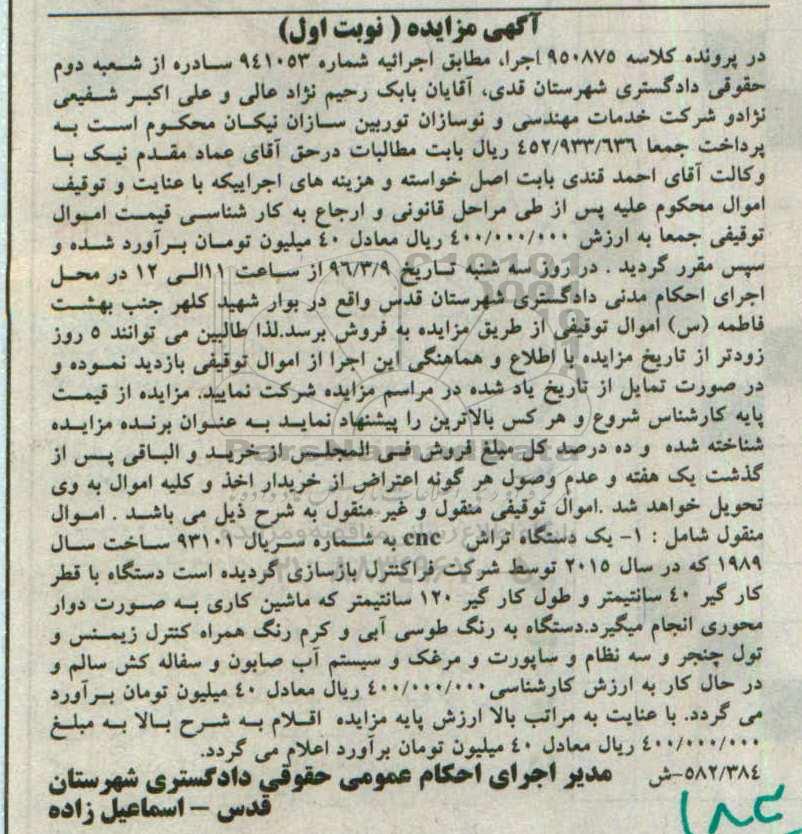 آگهی مزایده ( نوبت اول)
در پرونده کلاسه ۹۵۰۸۷۵ اجرا، مطابق اجرائیه شماره ۹٤۱۰٥۳ سادره از شعبه دوم
حقوقی دادگستری شهرستان قدی، آقایان بابک رحیم نژاد عالی و علی اکبر شفیعی
نژادو شرکت خدمات مهندسی و نوسازان توربین سازان نیکان محکوم است به
پرداخت جمعا ٤٥۲/۹۳۳/٦۳٦ ریال بابت مطالبات درحق آقای عماد مقدم نیک با
وکالت آقای احمد قندی بابت اصل خواسته و هزینه های اجراییکه با عنایت و توقیف
اموال محکوم علیه پس از طی مراحل قانونی و ارجاع به کار شناسی قیمت اموال
توقیفی جمعا به ارزش ٤۰۰/۰۰۰/۰۰۰ ریال معادل ٤۰ میلیون تومان برآورد شده و
سپس مقرر گردید . در روز سه شنبه تاریخ ۹٦/۳/۹ از ساعت ۱۱الی ۱۲ در محل
اجرای احکام مدنی دادگستری شهرستان قدس واقع در بوار شهید کلهر جنب بهشت
فاطمه (س) اموال توقیفی از طریق مزایده به فروش برسد.لذا طالبین می توانند ٥ روز
زودتر از تاریخ مزایده با اطلاع و هماهنگی این اجرا از اموال توقیفی بازدید نموده و
در صورت تمایل از تاریخ یاد شده در مراسم مزایده شرکت نمایید. مزایده از قیمت
پایه کارشناس شروع و هر کس بالاترین را پیشنهاد نماید به عنوان برنده مزایده
شناخته شده و ده درصد کل مبلغ فروش فی المجلس از خرید و الباقی پس از
گذشت یک هفته و عدم وصول هر گونه اعتراض از خریدار اخذ و کلیه اموال به وی
تحویل خواهد شد .اموال توقیفی منقول و غیر منقول به شرح ذیل می باشد . اموال
منقول شامل : ۱- یک دستگاه تراش cnc به شماره سریال ۹۳۱۰۱ ساخت سال
۱۹۸۹ که در سال ۲۰۱٥ توسط شرکت فراکنترل بازسازی گردیده است دستگاه با قطر
کار گیر ٤۰ سانتیمتر و طول کار گیر ۱۲۰ سانتیمتر که ماشین کاری به صورت دوار
محوری انجام میگیرد.دستگاه به رنگ طوسی آبی و کرم رنگ همراه کنترل زیمنس و
تول چنجر و سه نظام و ساپورت و مرغک و سیستم آب صابون و سفاله کش سالم و
در حال کار به ارزش کارشناسی ٤۰۰/۰۰۰/۰۰۰ ریال معادل ٤۰ میلیون تومان برآورد
می گردد. با عنایت به مراتب بالا ارزش پایه مزایده اقلام به شرح بالا به مبلغ
٤۰۰/۰۰۰/۰۰۰ ریال معادل ٤۰ میلیون تومان برآورد اعلام می گردد.
٥۸۲/۳۸٤-ش مدیر اجرای احکام عمومی حقوقی دادگستری شهرستان
قدس - اسماعیل زاده